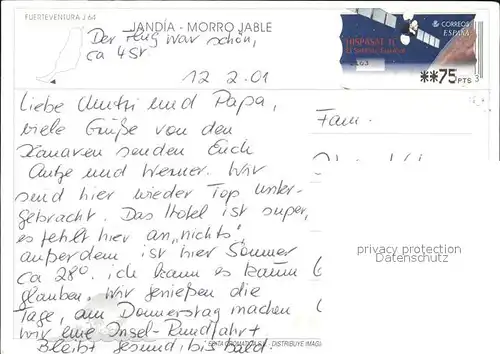 FUERTEVENTURA J 64
JANDÍA - MORRO JABLE
Der Flug war schön,
ca 4 St
12 2.01
HISPASAT 1
CORREOS
ESPAÑA
**75 PTS
Liebe Mutti und Papa,
viele Grüße von den
Kanaren senden Euch
Antje und Werner. Wir
sind hier wieder Top unter-
gebracht. Das Hotel ist super,
es fehlt hier an „nichts",
außerdem ist hier Sommer
ca 28°. ich kann es kaum
glauben. Wir genießen die
Tage, am Donnerstag machen
wir eine Insel-Rundfahrt
Bleibt gesund, bis bald.
Fam.
privacy protection
DISTRIBUYE